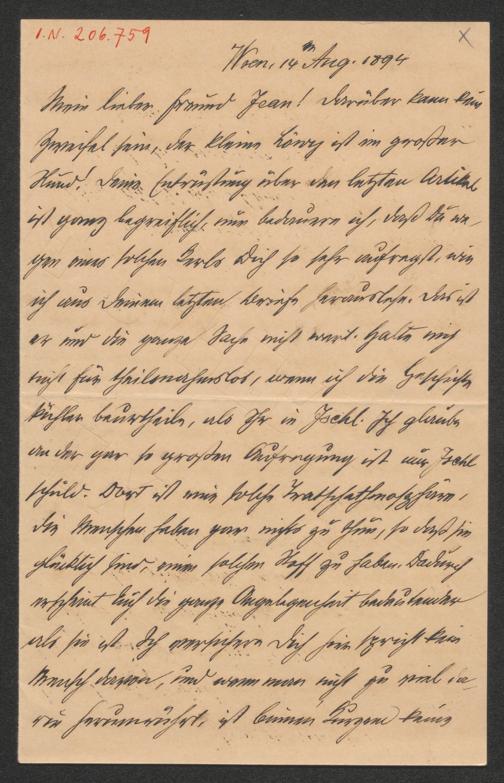 I.N. 206.759
Wien, 14ten Aug. 1894
Mein lieber Freund Jean! Darüber kann kein
Zweifel sein, der kleine Löwy ist ein großer
Hund! Deine Entrüstung über den letzten Artikel
ist ganz begreiflich, nur bedauere ich, daß Du we-
gen eines solchen Kerls Dich so sehr aufregst, wie
ich aus Deinem letzten Briefe herauslese. Das ist
er und die ganze Sache nicht wert. Halte mich
nicht für theilnahmslos, wenn ich die Geschichte
kühler beurtheile, als Ihr in Ischl. Ich glaube
an der gar so großen Aufregung ist nur Ischl
schuld. Dort ist eine solche Tratschathmosphäre,
die Menschen haben gar nichts zu thun, so daß sie
glücklich sind, einen solchen Stoff zu haben. Dadurch
erscheint Euch die ganze Angelegenheit bedeutender
als sie ist. Ich versichere Dich hier spricht kein
Mensch davon, und wenn man nicht zu viel da-
rin herumrührt, ist binnen Kurzem keine